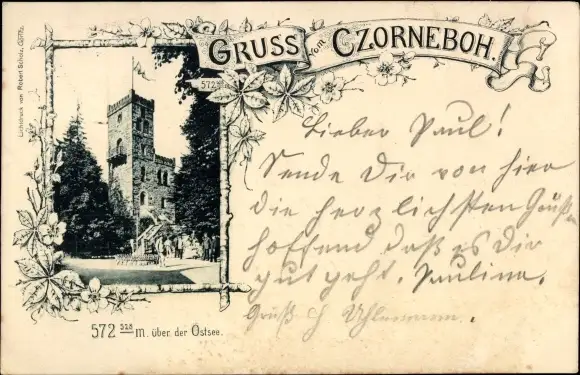 GRUSS vom CZORNEBOH.
572
Lichtdruck von Robert Scholz, Görlitz.
Lieber Paul!
Sende Dir von hier
die herzlichsten Grüße
hoffend daß es Dir
gut geht. Paulina.
Gruß Uhlemann.
572 528 m. über der Ostsee.